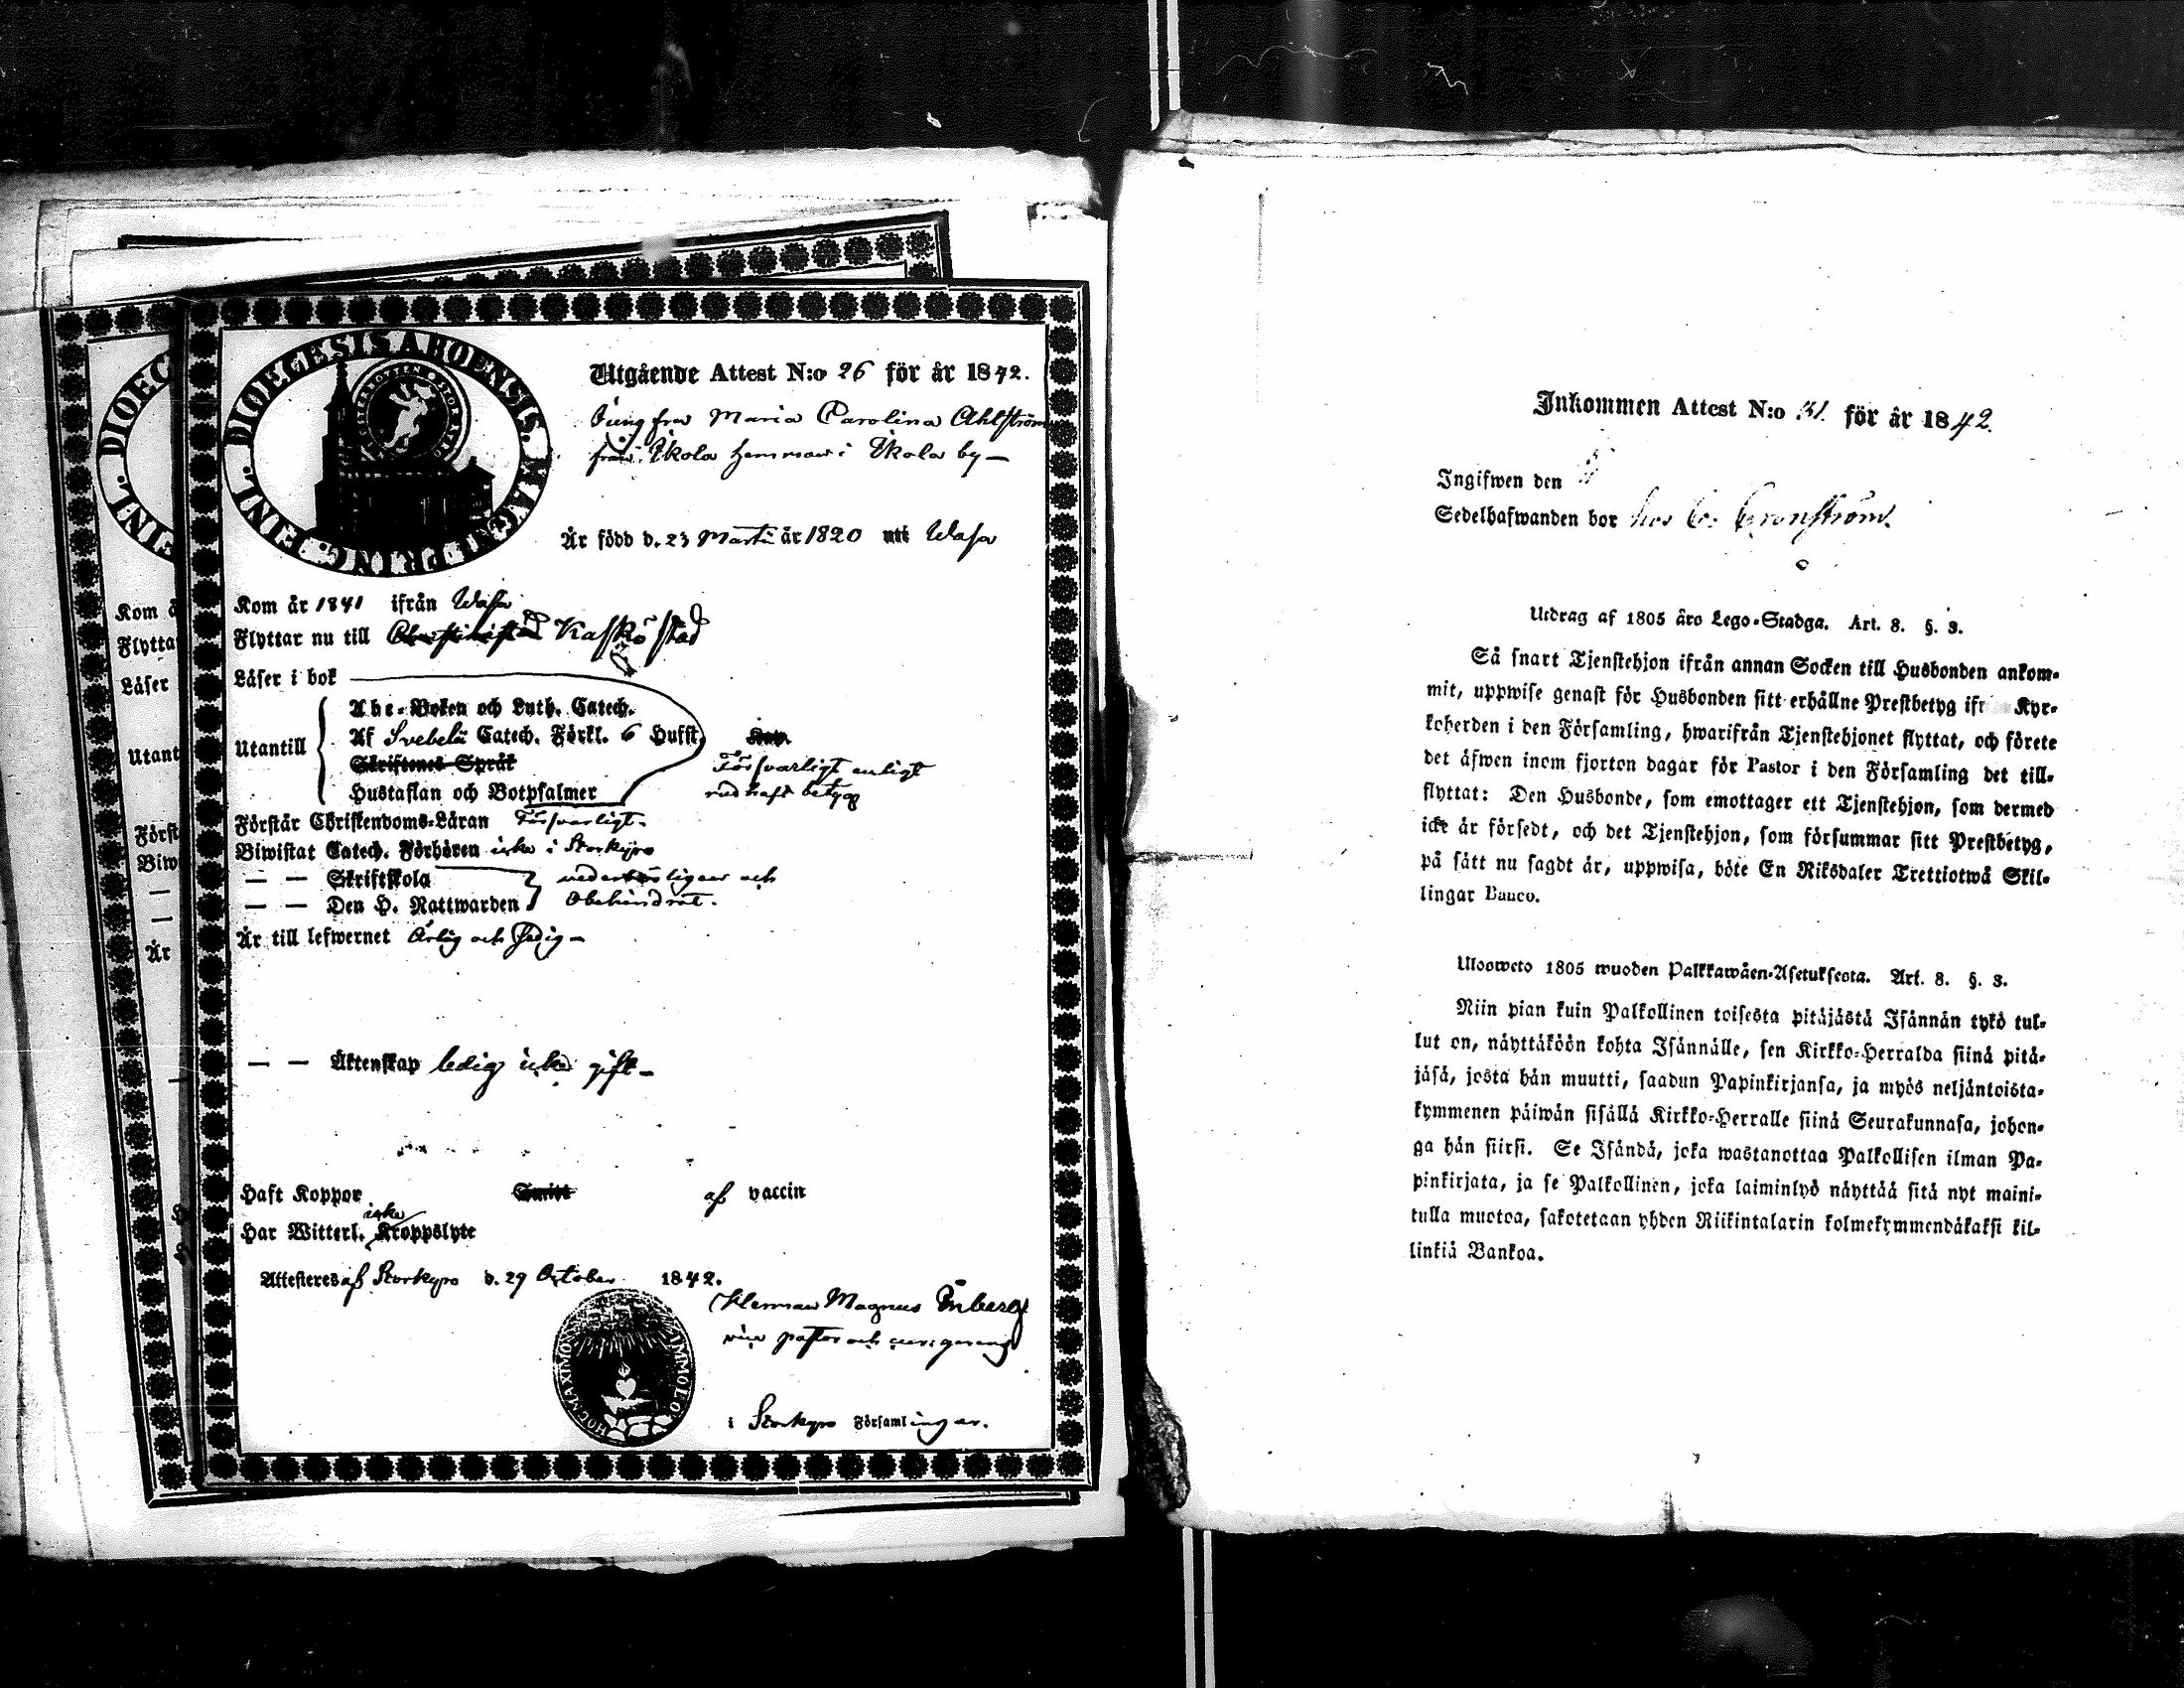 DIOECESIS ABOENSIS. MAGN. PRINC. FINL.
Utgående Attest N:o 26 för år 1842.
Jungfru Maria Carolina Ahlström
från Skola hemman i Skola by —
Är född d. 23 Martii år 1820 uti Wasa
Kom år 1841 ifrån Wasa
Flyttar nu till Christinestad Kaskö stad
Läser i bok
Utantill
Abc-Boken och Luth. Catech.
Af Svebelii Catech. Förkl. 6 Hufst.
Skriftenes Språk
Hustaflan och Botpsalmer
Försvarligt enligt
betyg
Förstår Christendoms-Läran Försvarligt.
Biwistat Catech. Förhören icke i Storkyro
— — Skriftskola
— — Den H. Nattwarden
vederbörligen och
Obehindrat.
Är till lefwernet Ärlig och sedig —
— — Äktenskap ledig icke gift —
Haft Koppor af vaccin
Har Witterl. icke Kroppslyte
Attesteres af Storkyro d. 29 October 1842.
Herman Magnus Enberg
vice pastor och
i Storkyro Församlingar.
DIOEC
INL.
Kom å
Flytta
Läser
Utant
Först
Biw
—
—
Är
Inkommen Attest N:o 31. för år 1842.
Ingifwen den
Sedelhafwanden bor hos C. Cronström.
Utdrag af 1805 åro Lego-Stadga. Art. 8. §. 3.
Så snart Tjenstehjon ifrån annan Socken till Husbonden ankom-
mit, uppwise genast för Husbonden sitt erhållne Prestbetyg ifr Kyr-
koherden i den Församling, hwarifrån Tjenstehjonet flyttat, och förete
det äfwen inom fjorton dagar för Pastor i den Församling det till-
flyttat: Den Husbonde, som emottager ett Tjenstehjon, som dermed
icke är försedt, och det Tjenstehjon, som försummar sitt Prestbetyg,
på sätt nu sagdt är, uppwisa, böte En Riksdaler Trettiotwå Skil-
lingar Banco.
Ulosweto 1805 wuoden Palkkawäen-Asetuksesta. Art. 8. §. 3.
Niin pian kuin Palkollinen toisesta pitäjästä Isännän tykö tul-
lut on, näyttäköön kohta Isännälle, sen Kirkko-Herralda siinä pitä-
jäsä, josta hän muutti, saadun Papinkirjansa, ja myös neljäntoista-
kymmenen päiwän sisällä Kirkko-Herralle siinä Seurakunnasa, johon-
ga hän siirsi. Se Isändä, joka wastanottaa Palkollisen ilman Pa-
pinkirjata, ja se Palkollinen, joka laiminlyö näyttää sitä nyt maini-
tulla muotoa, sakotetaan yhden Riikintalarin kolmekymmendäkaksi kil-
linkiä Bankoa.